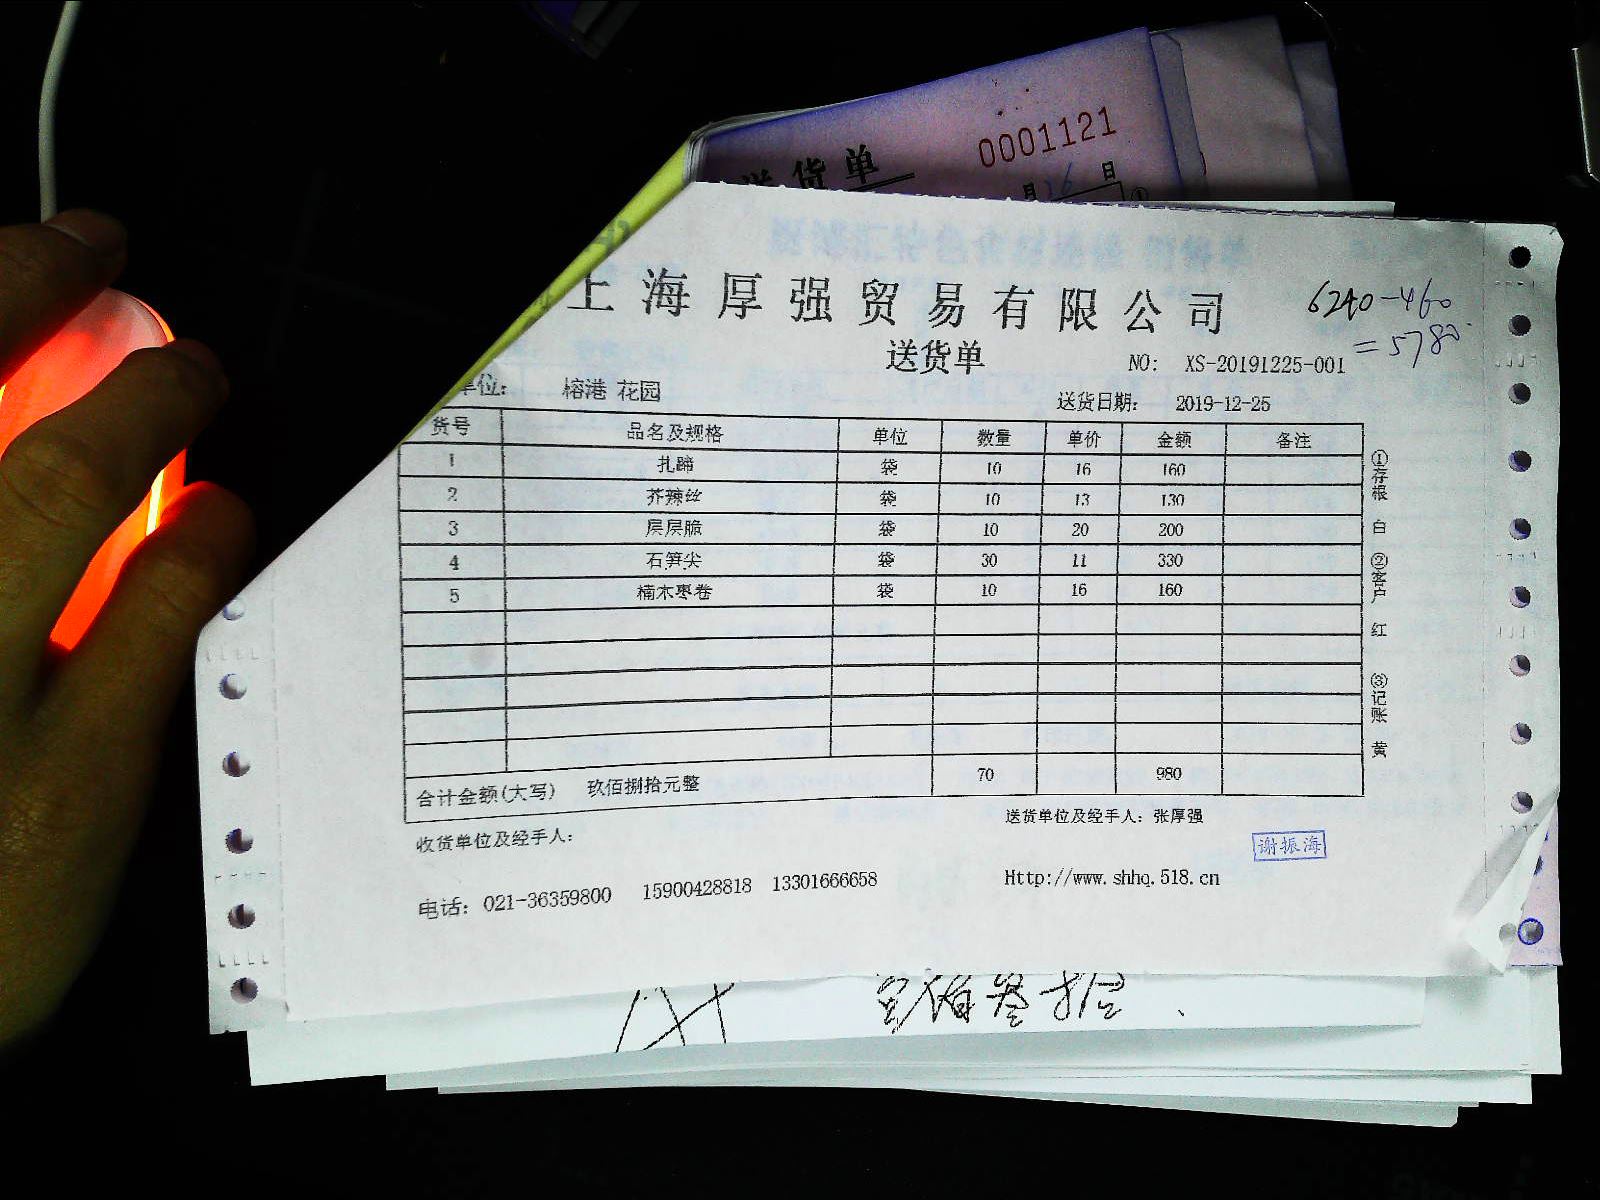 0001121
送货单
月 26 日
上海厚强贸易有限公司
6240-460
=5780
送货单
NO: XS-20191225-001
单位: 榕港 花园
送货日期: 2019-12-25
货号 品名及规格 单位 数量 单价 金额 备注
1 扎蹄 袋 10 16 160
2 芥辣丝 袋 10 13 130
3 层层脆 袋 10 20 200
4 石笋尖 袋 30 11 330
5 楠木枣卷 袋 10 16 160
70 980
合计金额(大写) 玖佰捌拾元整
①存根 白 ②客户 红 ③记账 黄
收货单位及经手人:
送货单位及经手人: 张厚强
谢振海
电话: 021-36359800 15900428818 13301666658
Http://www.shhq.518.cn